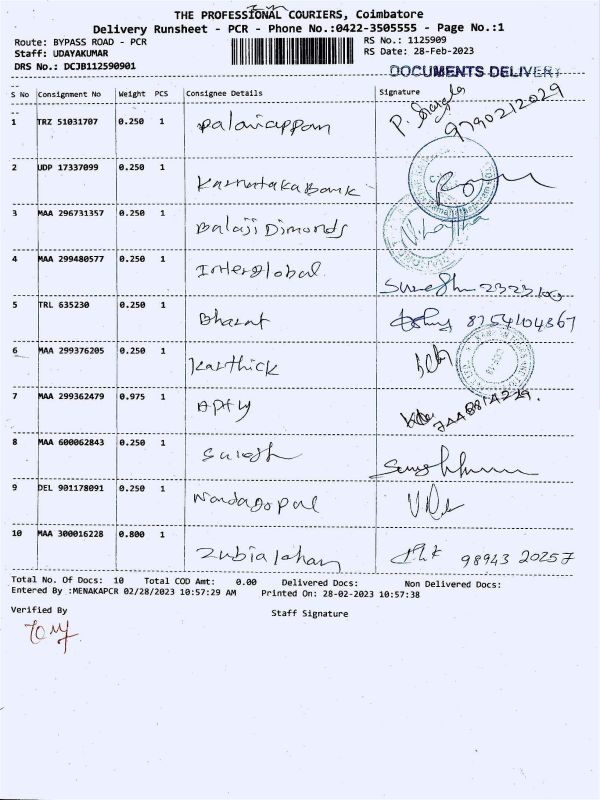 THE PROFESSIONAL COURIERS, Coimbatore
Delivery Runsheet - PCR - Phone No.:0422-3505555 - Page No.:1
Route: BYPASS ROAD - PCR
RS No.: 1125909
Staff: UDAYAKUMAR
RS Date: 28-Feb-2023
DRS No.: DCJB112590901
DOCUMENTS DELIVERY
S No Consignment No Weight PCS Consignee Details Signature
1 TRZ 51031707 0.250 1 Palaniappan P. 9790212029
2 UDP 17337099 0.250 1 Karnataka Bank
3 MAA 296731357 0.250 1 Balaji Dimonds
4 MAA 299480577 0.250 1 Interglobal Suresh 2323100
5 TRL 635230 0.250 1 Bharat 8754104367
6 MAA 299376205 0.250 1 Karthick
7 MAA 299362479 0.975 1
8 MAA 600062843 0.250 1 Suresh
9 DEL 901178091 0.250 1 Nandagopal
10 MAA 300016228 0.800 1 98943 20257
Total No. Of Docs: 10 Total COD Amt: 0.00 Delivered Docs: Non Delivered Docs:
Entered By :MENAKAPCR 02/28/2023 10:57:29 AM Printed On: 28-02-2023 10:57:38
Verified By
Staff Signature